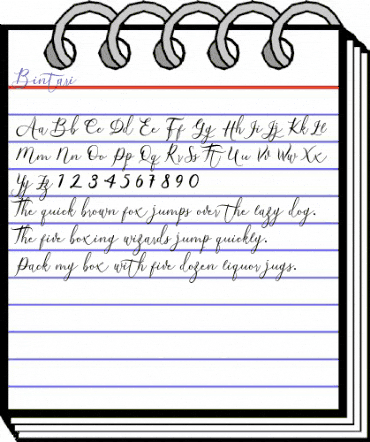 Bintari
Aa Bb Cc Dd Ee Ff Gg Hh Ii Jj Kk Ll
Mm Nn Oo Pp Qq Rr Ss Tt Uu Vv Ww Xx
Yy Zz 1 2 3 4 5 6 7 8 9 0
The quick brown fox jumps over the lazy dog.
The five boxing wizards jump quickly.
Pack my box with five dozen liquor jugs.